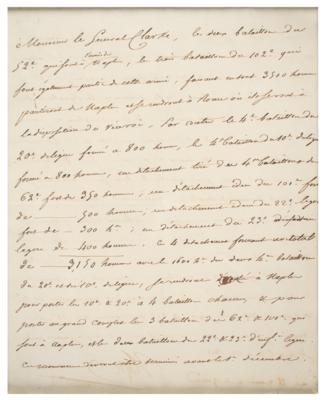 Monsieur le General Clarke, les deux bataillons du
52e qui sont à Naples, les trois bataillons du 102e qui
font également partie de cette armée, faisant entout 3500 hommes
partiront de Naples et se rendront à Rome où ils seront à
la disposition du Viceroi. Par contre le 4e bataillon du
20e de ligne formé à 800 hom, le 4e bataillon du 10e de ligne
formé à 800 hommes, un détachement tiré du 4e bataillon de
62e fort de 350 hommes; un détachement du 101e fort
de 500 hommes, un détachement du 22e légère
fort de 300 h; un détachement du 23e
légère de 400 hommes. Ce 4 détachemens formant un total
de 3,150 hommes avec les 1600 h. des deux 4e bataillons
du 20e et du 10e de ligne, se rendront à Naples
pour porter les 10e & 20e à 4 bataillons chacun, & pour
porter au grand complet les 3 bataillons des 62e & 101e qui
sont à Naples, et les deux bataillons des 22e & 23e d'inf. légère.
Ce mouvement devra être terminé avant le 1er décembre.